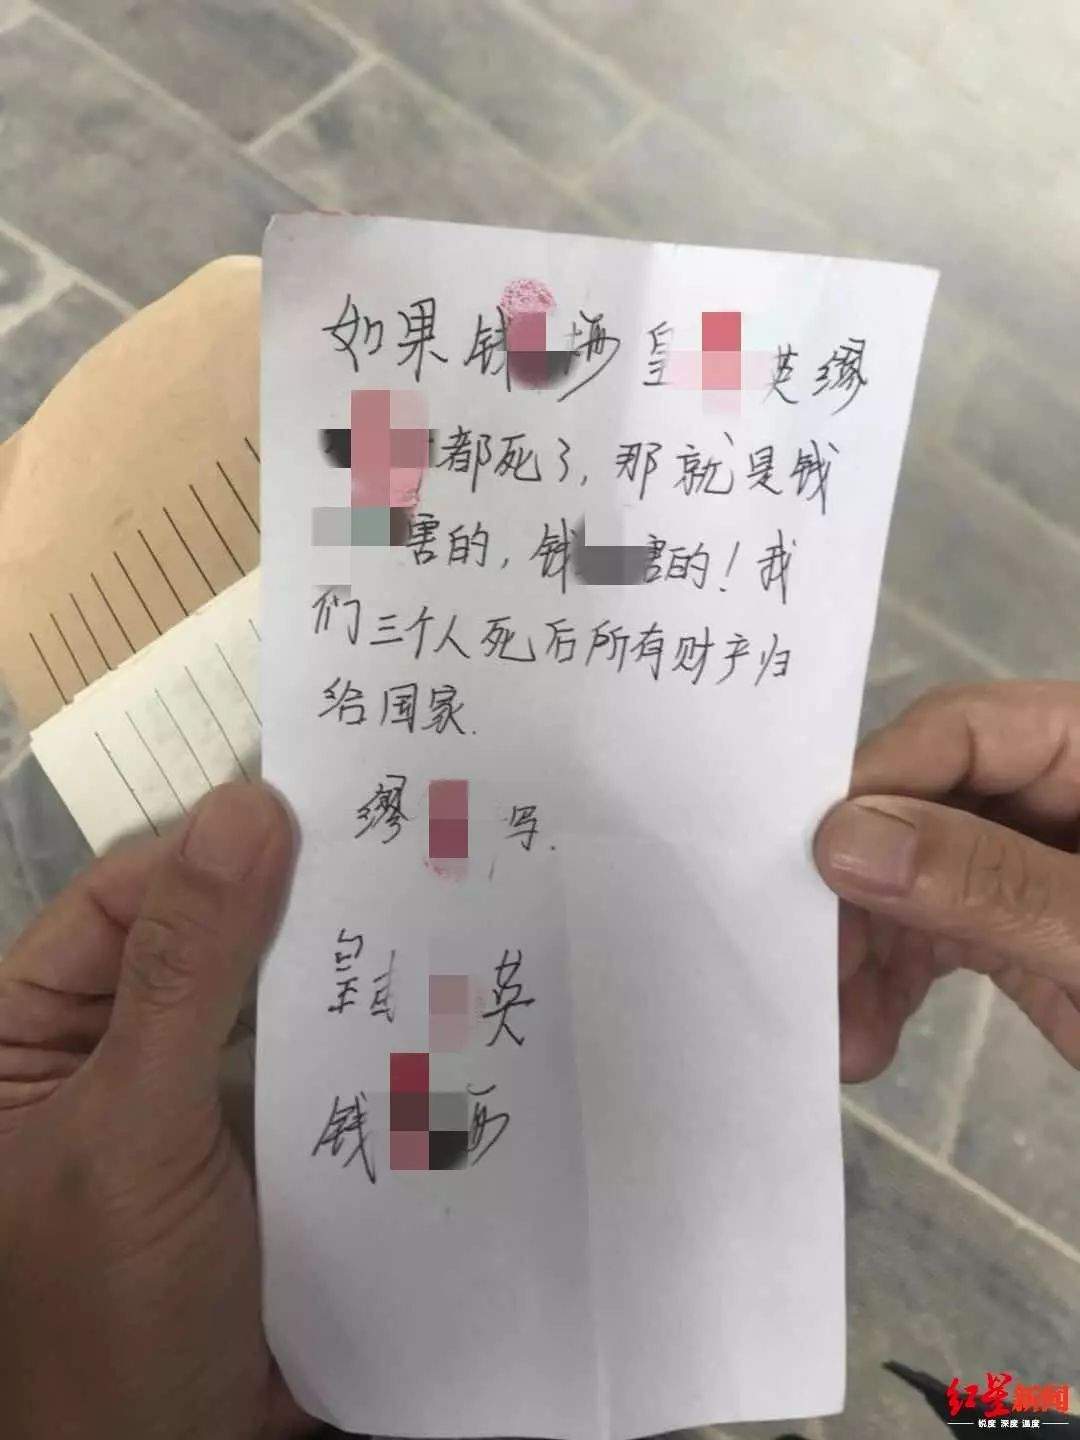 如果钱 皇 英缪
都死了，那就是钱
害的，钱 害的！我
们三个人死后所有财产归
给国家.
缪 写.
皇甫 英
钱
红星新闻
锐度 深度 温度